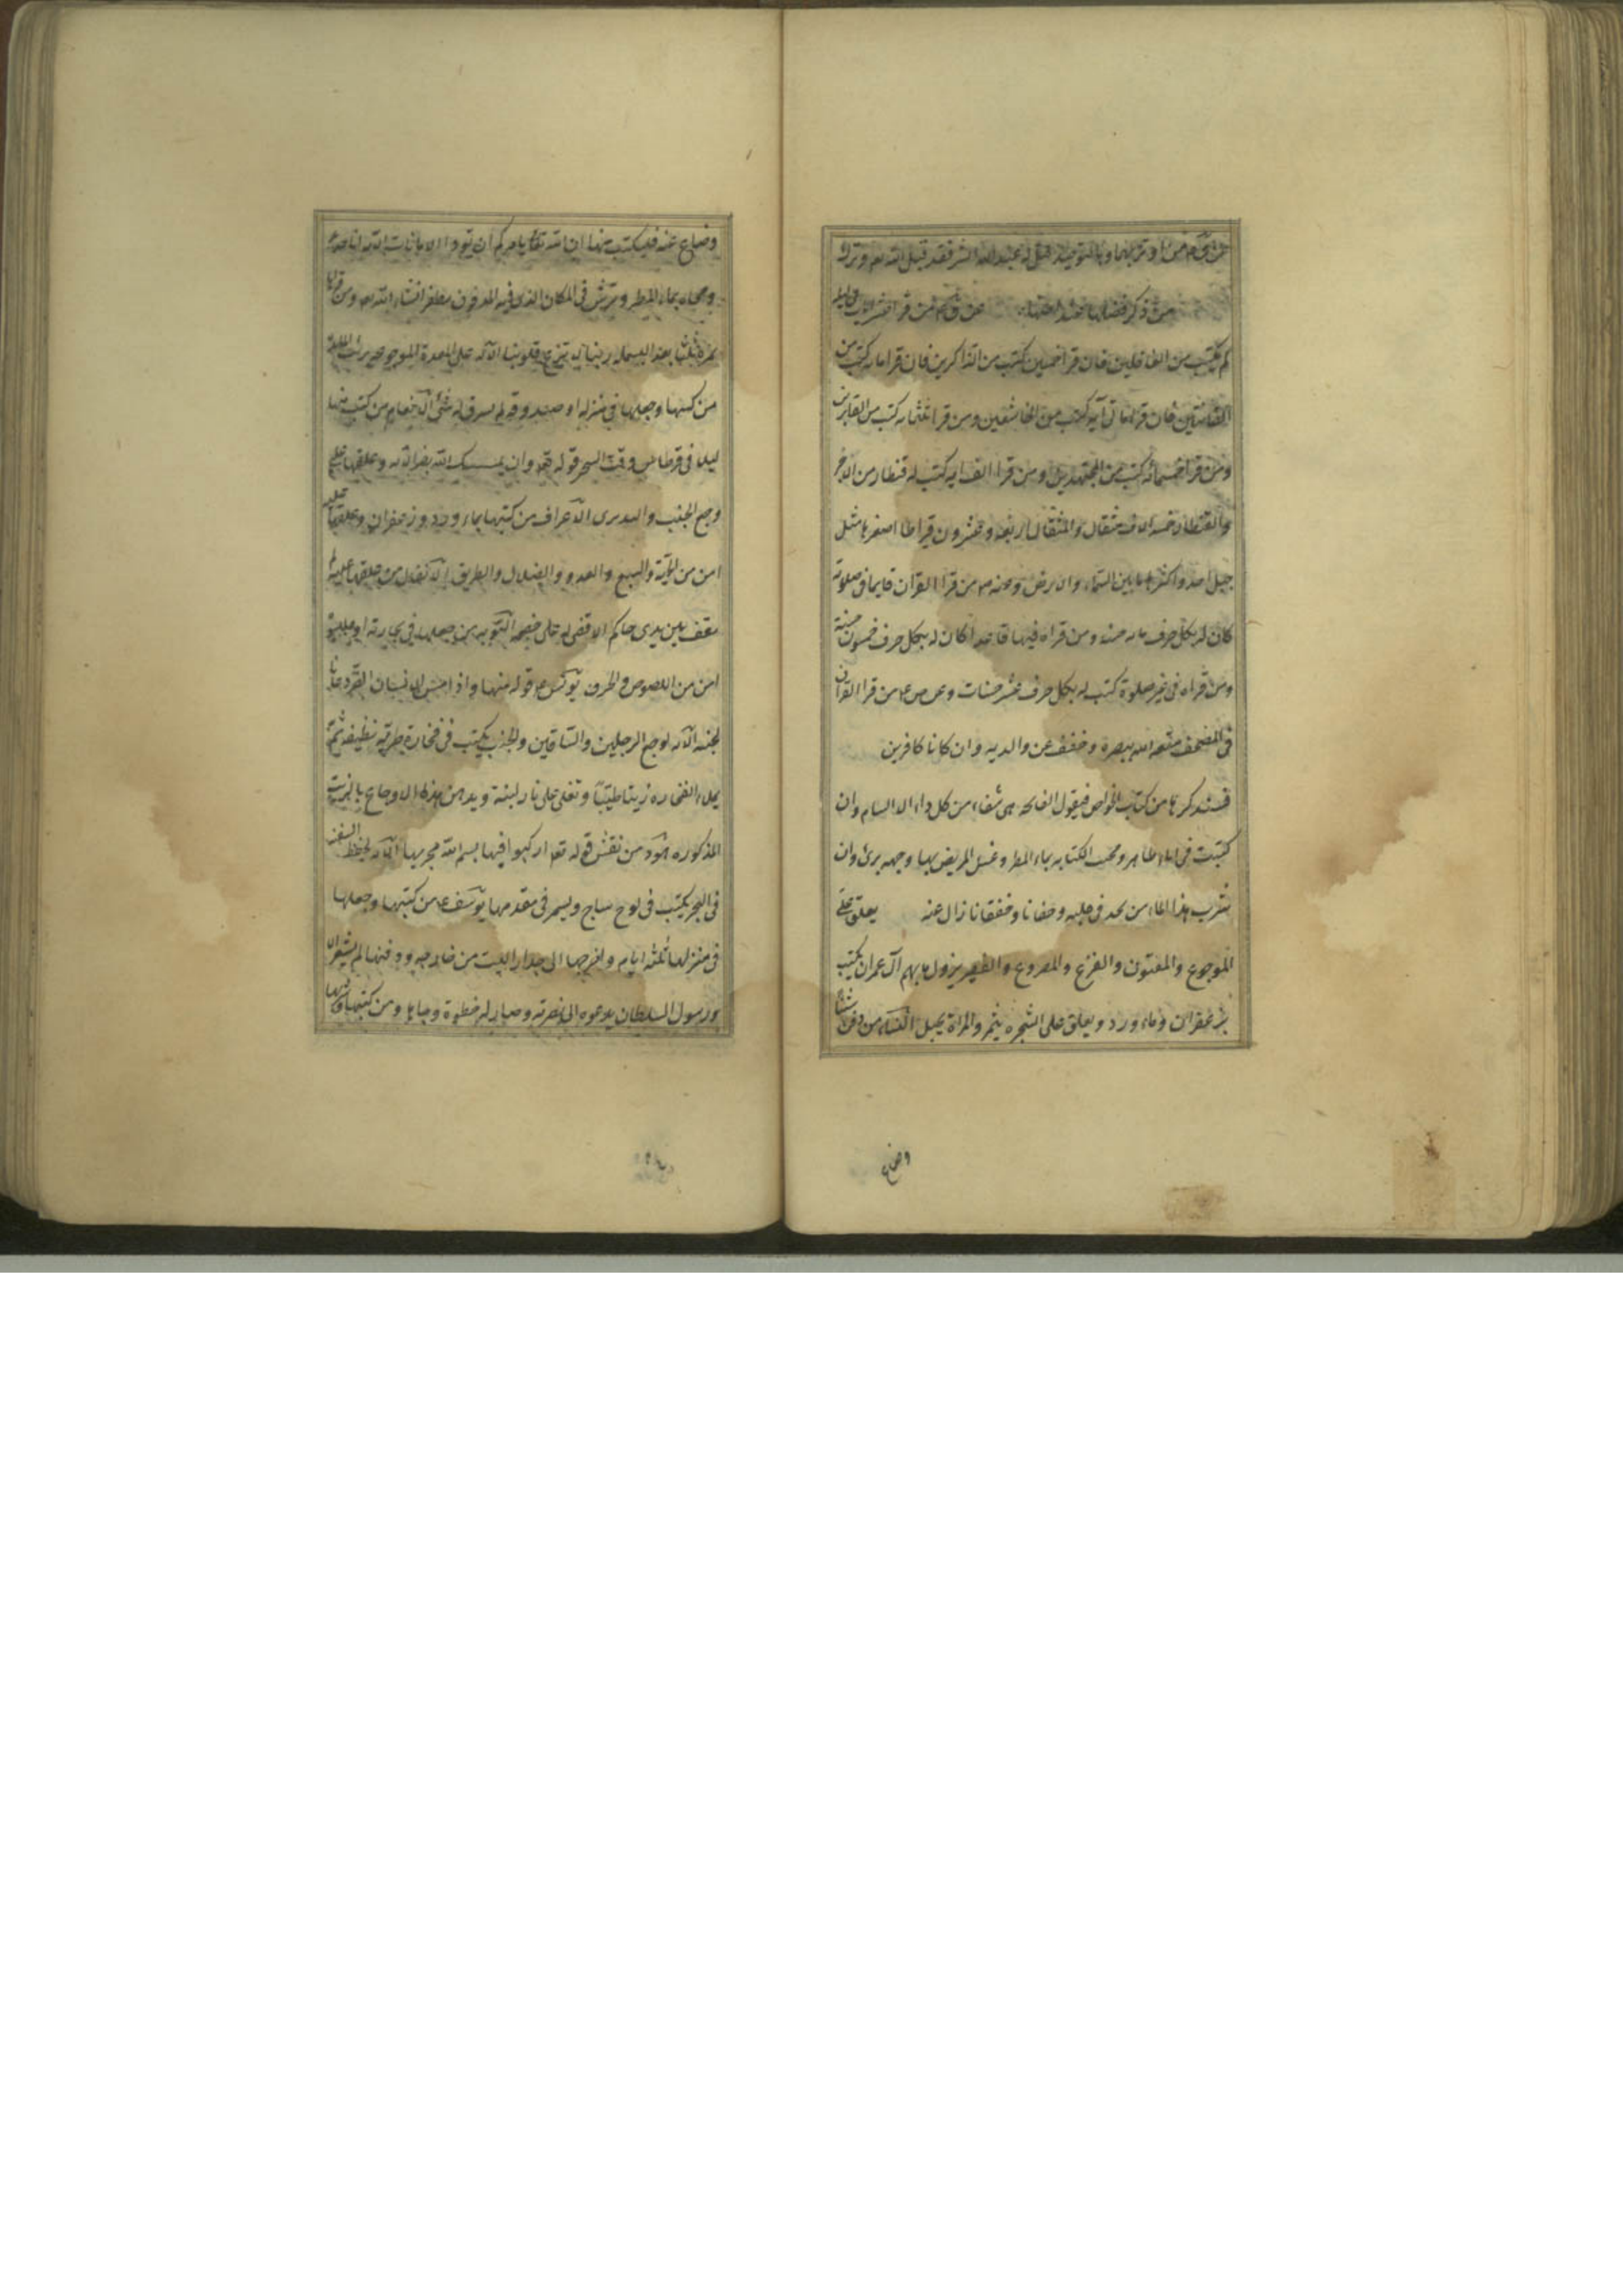 عن ق م من اوتر بهما وبالتوحيد قيل له عبد الله ابشر فقد قبل الله تعم وترك
من ذكر فضلها عند اختها عن ق م من قرا عشر آيات في ليلة
لم يكتب من الغافلين فان قرا خمسين كتب من الذاكرين فان قرا مائه كتب من
القانتين فان قرا مائتي آيه كتب من الخاشعين ومن قرا ثلثمائه كتب من الفايزين
ومن قرا خمسمائه كتب من المجتهدين ومن قرا الف ايه كتب له قنطار من الاجر
والقنطار خمسه الاف مثقال والمثقال اربعه وعشرون قيراطا اصغرها مثل
جبل احد واكبرها ما بين السماء والارض وعنه من قرا القران قايما في صلوته
كان له بكل حرف مائه حسنه ومن قراه فيها قاعدا كان له بكل حرف خمسون حسنة
ومن قراه في غير صلوة كتب له بكل حرف عشر حسنات وعن ص ع من قرا القران
في المصحف متعه الله ببصره وخفف عن والديه وان كانا كافرين
فسنذكرها من كتاب الخواص فيقول الفاتحه هى شفاء من كل داء الا السام وان
كتبت في اناء طاهر ومحيت الكتابه بماء المطر وغسل المريض بها وجهه برئ وان
شرب هذا الماء من يجد في قلبه وخفقانا زال عنه يعلق على
الموجوع والمفتون والفزع والمصروع والفقير يزول ما بهم آل عمران يكتب
بزعفران وماء ورد ويعلق على الشجره يثمر والمراة يحبل النساء من دفن شيئا
وضاع
وضاع عنه فليكتب منها ان الله تعالى يامركم ان تؤدوا الامانات الآيه
ومحاه بماء المطر ويرش في المكان الذى فيه المدفون يظفر انشاء الله تعم ومن قراها
ثلثا بعد البسمله ربنا لا تزغ قلوبنا الآيه على المعدة الموجوعه برئت المائدة
من كتبها وجعلها في منزله او صندوقه لم يسرق له شئ الانعام من كتب منها
ليلا في قرطاس وقت السحر قوله تعم وان يمسسك الله بضر الآيه وعلقها على
وجع الجنب واليدين برى الاعراف من كتبها بماء ورد وزعفران وعلقها عليه
امن من الحية والسبع والعدو والضلال والطريق الانفال من علقها عليه لم
يقف بين يدى حاكم الا قضى له على خصمه التوبه من جعلها في تجارته او
امن من اللصوص والحرق يونس ع قوله منها واذا مس الانسان الضر دعانا
لجنبه الآيه لوجع الرجلين والساقين والجنب يكتب في فخارة طريه نظيفه ثم
يملاء الفخاره زيتا طيبا وتغلى على نار لينة ويدهن بهذه الاوجاع بالزيت
المذكوره هود من نقش قوله تعم اركبوا فيها بسم الله مجريها الآيه لحفظ السفن
في البحر يكتب في لوح ساج ويسمر في مقدمها يوسف ع من كتبها وجعلها
في منزله ثلثه ايام واخرجها الى جدار البيت من خارجه ودفنها لم يشعر الا
ورسول السلطان يدعوه الى نصرته وصار له حظوة وجاها ومن كتبها وشربها